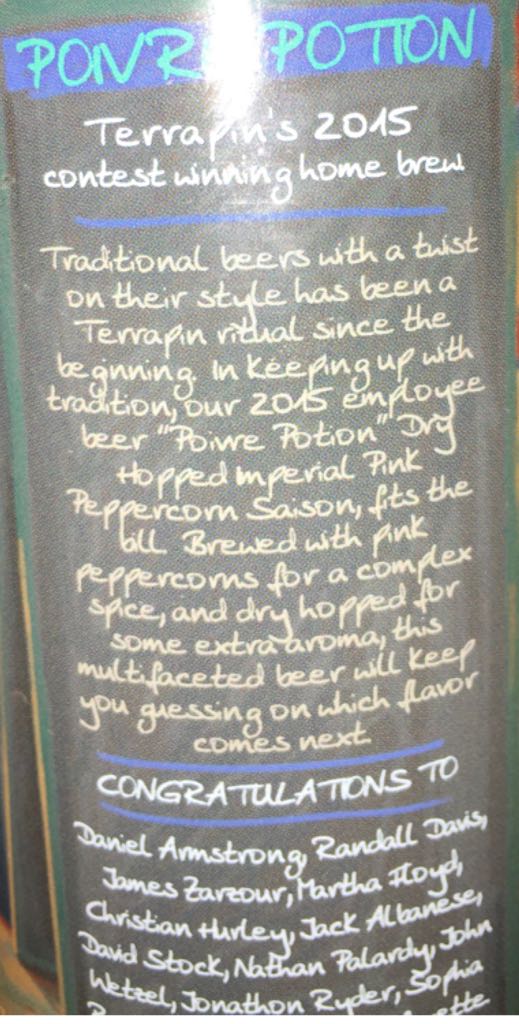 POIVRE POTION
Terrapin's 2015
contest winning home brew
Traditional beers with a twist
on their style has been a
Terrapin ritual since the
beginning. In keeping up with
tradition, our 2015 employee
beer "Poivre Potion" Dry
Hopped Imperial Pink
Peppercorn Saison, fits the
bill. Brewed with pink
peppercorns for a complex
spice, and dry hopped for
some extra aroma, this
multifaceted beer will keep
you guessing on which flavor
comes next.
CONGRATULATIONS TO
Daniel Armstrong, Randall Davis,
James Zarzour, Martha Floyd,
Christian Hurley, Jack Albanese,
David Stock, Nathan Palardy, John
Wetzel, Jonathon Ryder, Sophia